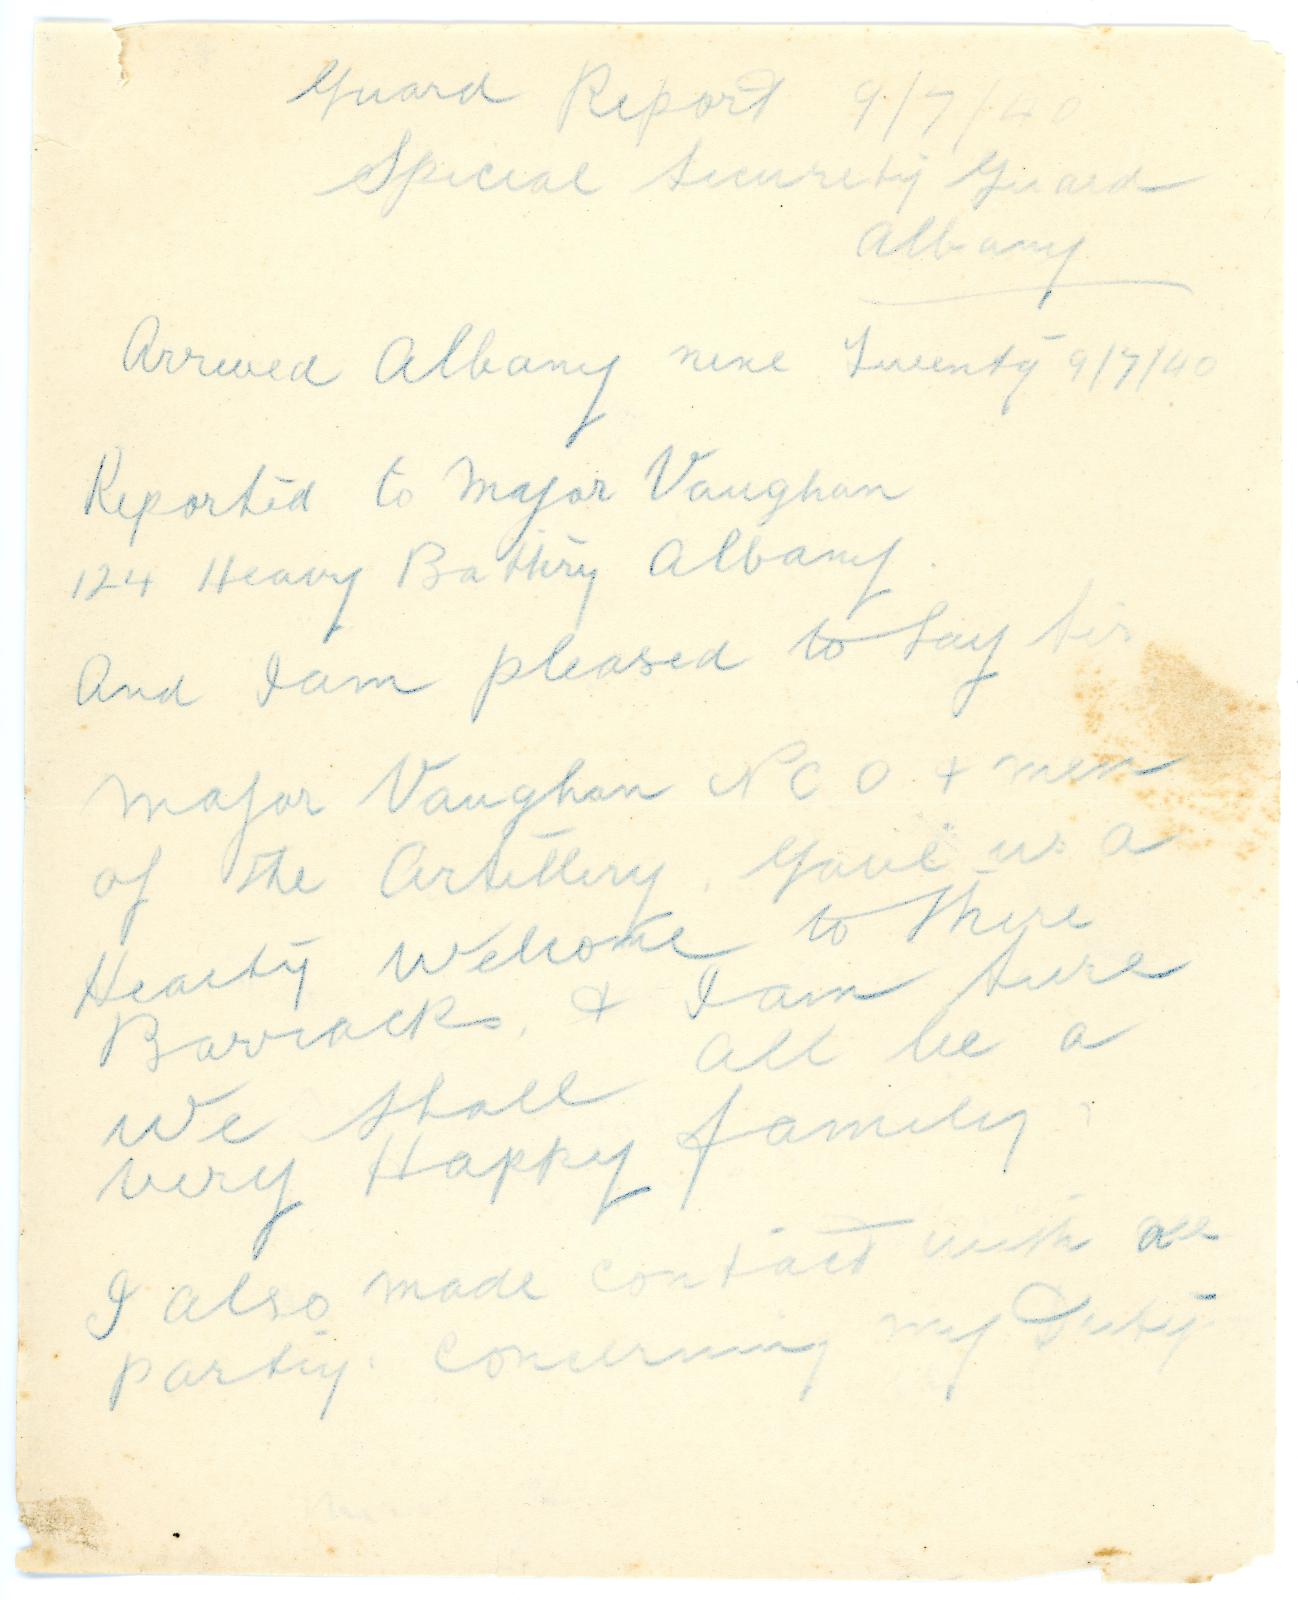 Guard Report 9/7/40
Special Security Guard
Albany
Arrived Albany nine Twenty 9/7/40
Reported to Major Vaughan
124 Heavy Battery Albany.
And I am pleased to Say Sir
Major Vaughan N C O & men
of The Artillery. Gave us a
Hearty Welcome to There
Barracks, & I am Sure
We Shall All be a
very Happy family
I also made contact with all
party. Concerning my Duty.